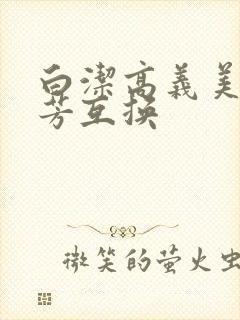 白潔高義美
芳互换
微笑的萤火虫